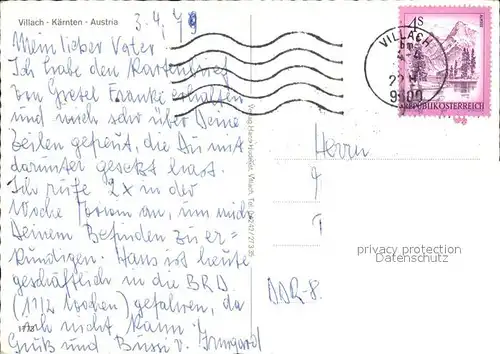 Villach - Kärnten - Austria
3. 4. 79
Mein lieber Vater
Ich habe den Kartenbrief
von Gretel Franki erhalten
und mich sehr über Deine
Zeilen gefreut, die Du mit
darunter gesetzt hast.
Ich rufe 2x in der
Woche an, um mich
Deinem Befinden zu er=
kundigen. Hans ist heute
geschäftlich in die BRD
(1 1/2 Wochen) gefahren, da
ich nicht kann
Gruß und Bussi v. Irmgard
1773
VILLACH
9500
1S
REPUBLIK ÖSTERREICH
Herrn
DDR-8.
privacy protection
Datenschutz